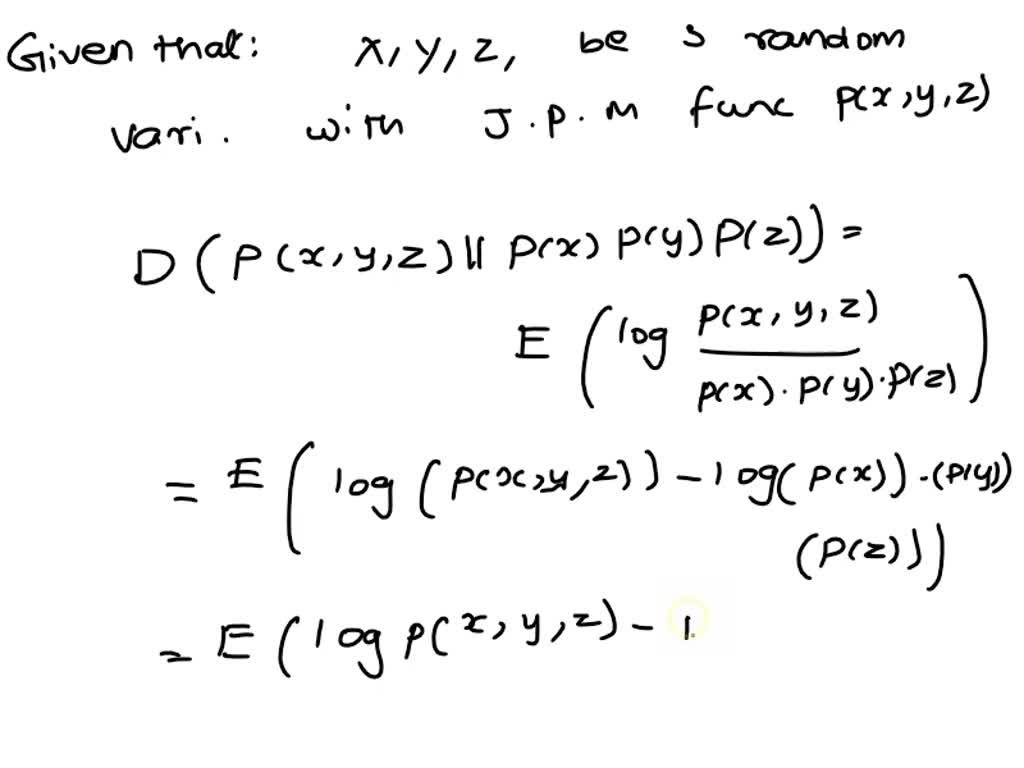 Given that: X, Y, Z, be 3 random
vari. with J.P.M func P(x,y,z)
D (P(x,y,z) || P(x) P(y) P(z)) =
E ( log P(x,y,z) / P(x).P(y).P(z) )
= E ( log (P(x,y,z)) - log(P(x)).(P(y))
(P(z)))
= E ( log P(x,y,z) - 1